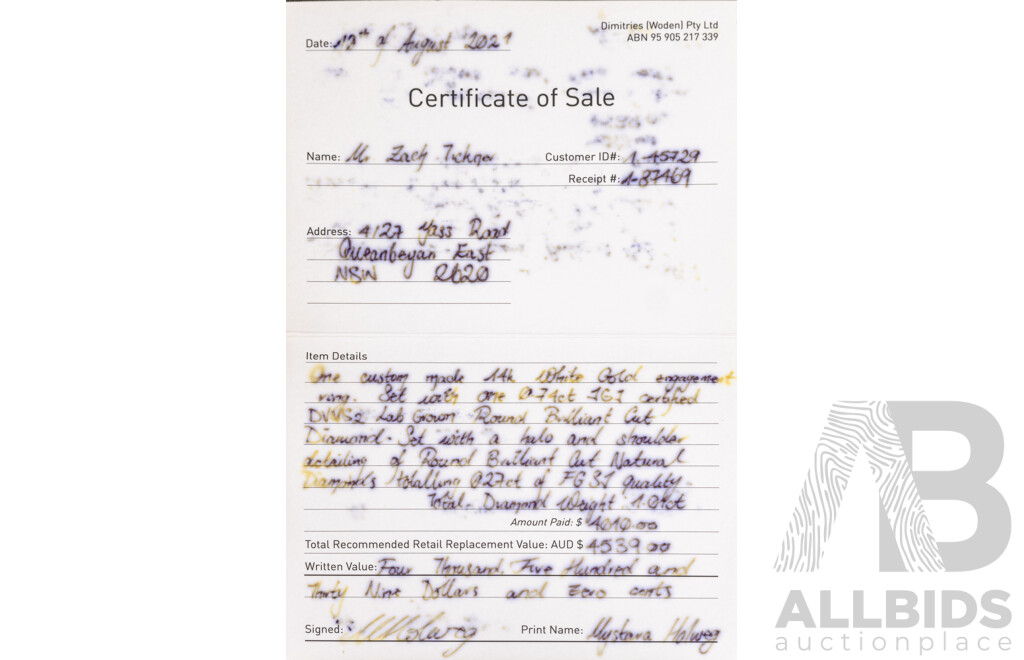 Dimitries (Woden) Pty Ltd
ABN 95 905 217 339
Date: 12th of August 2021
Certificate of Sale
Name: Mr Zach Tickner
Customer ID#: 1-45729
Receipt #: 1-87469
Address: 4/27 Yass Road
Queanbeyan East
NSW 2620
Item Details
One custom made 14k White Gold engagement
ring. Set with one 0.74ct IGI certified
DVVS2 Lab Grown Round Brilliant Cut
Diamond. Set with a halo and shoulder
detailing of Round Brilliant Cut Natural
Diamonds totalling 0.27ct of FG SI quality.
Total Diamond Weight 1.01ct
Amount Paid: $ 4010.00
Total Recommended Retail Replacement Value: AUD $ 4539.00
Written Value: Four Thousand, Five Hundred and
Thirty Nine Dollars and Zero cents
Signed:
Print Name: Mystana Holweg
AB
ALLBIDS
auctionplace